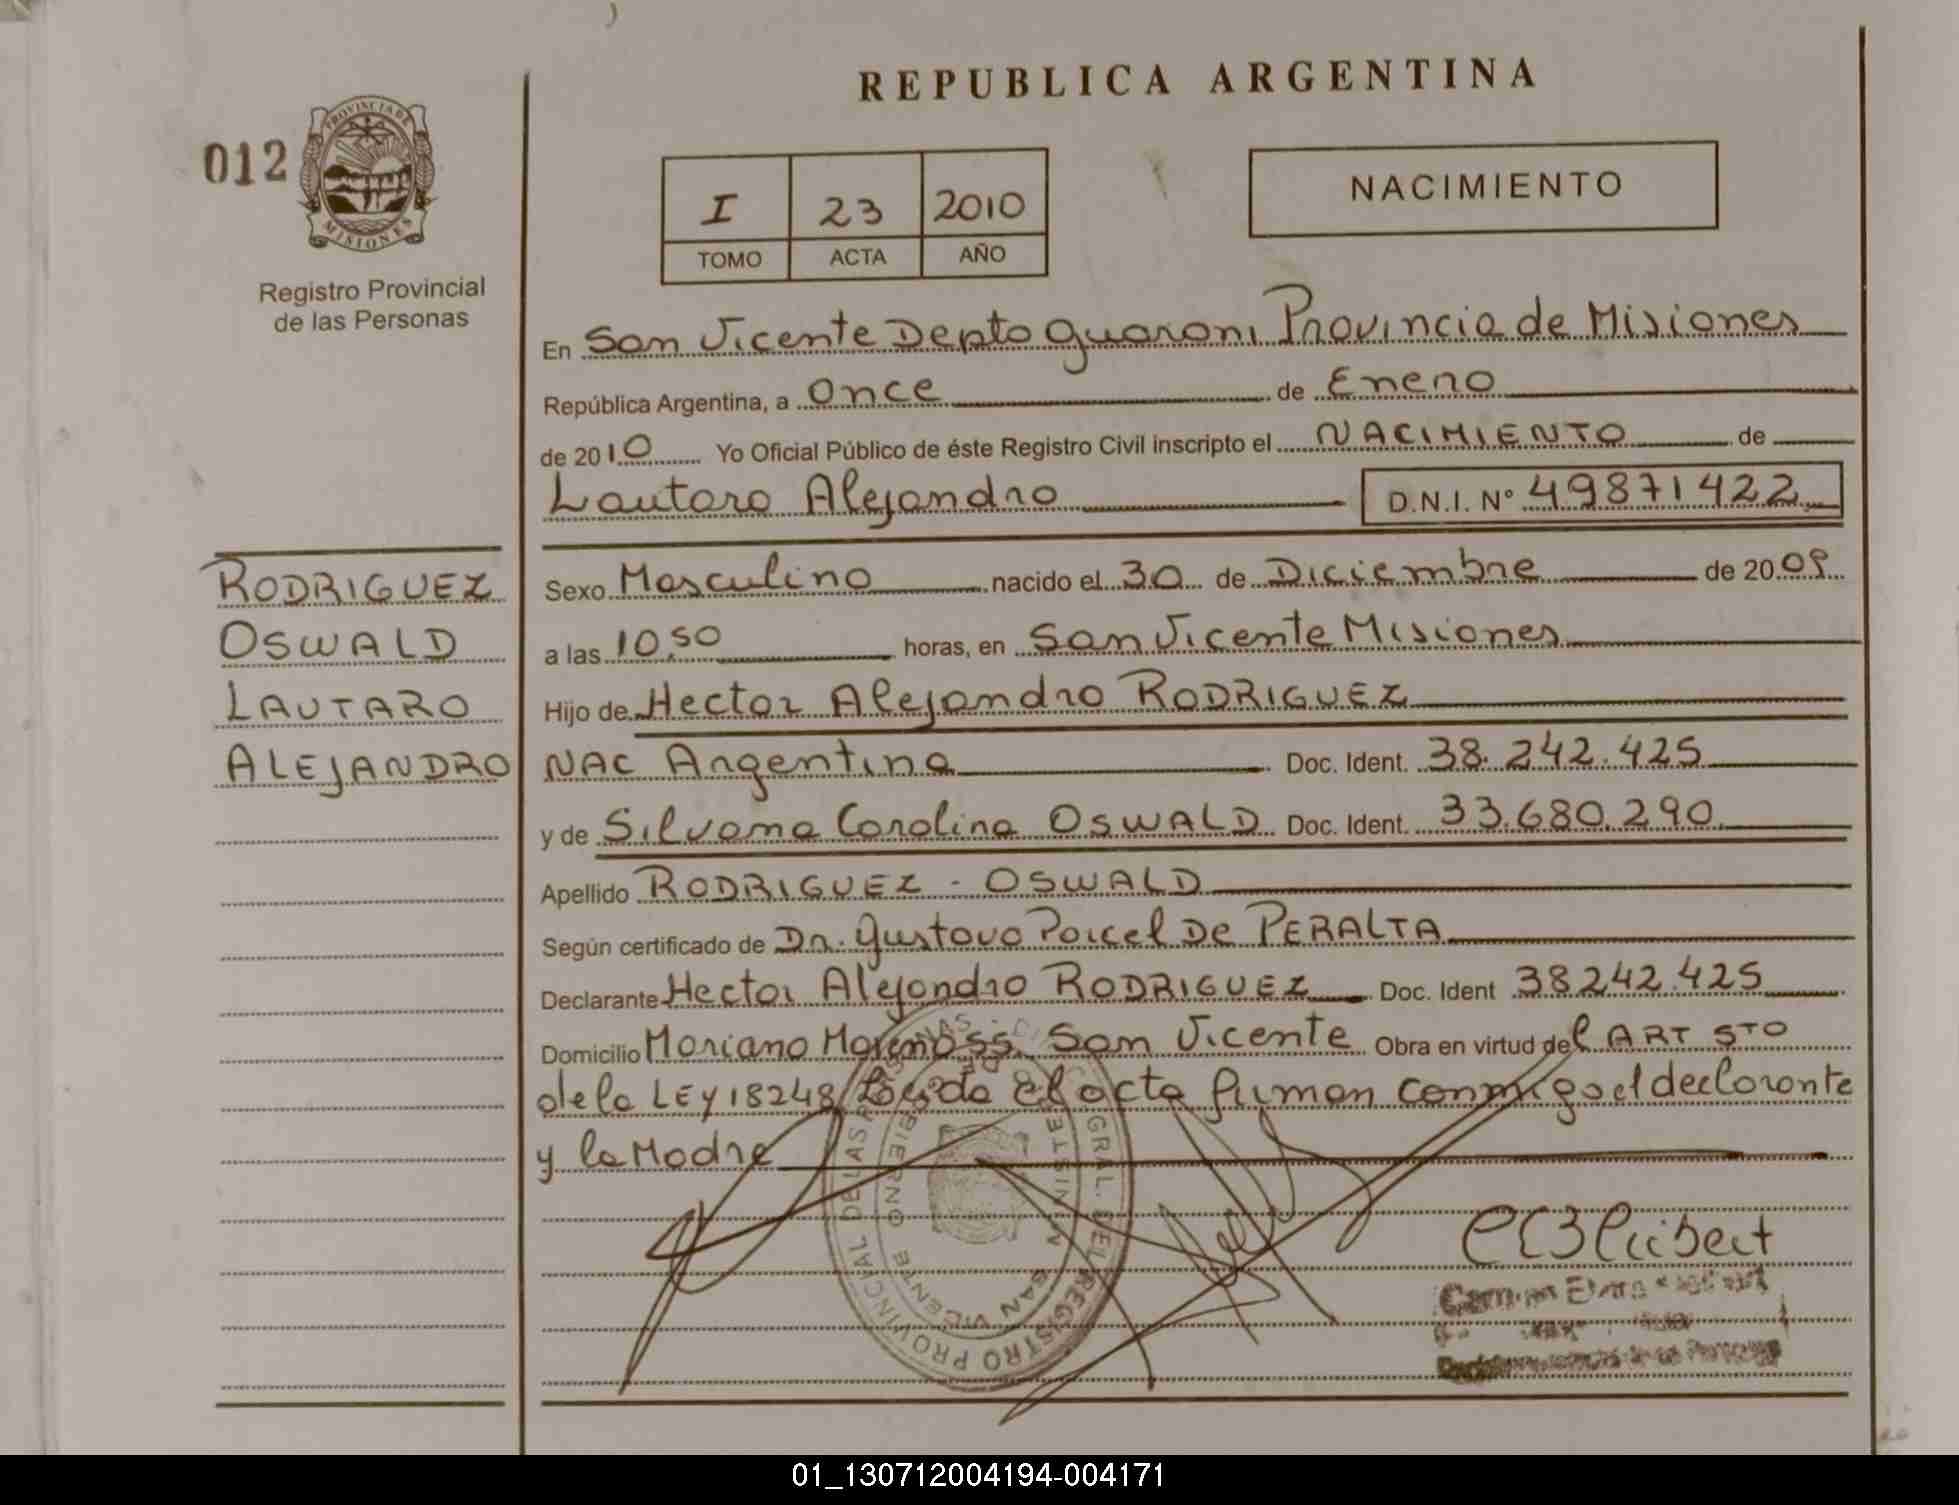 REPUBLICA ARGENTINA
012
PROVINCIA DE
MISIONES
Registro Provincial
de las Personas
I 23 2010
TOMO ACTA AÑO
NACIMIENTO
En San Vicente Depto Guarani Provincia de Misiones
República Argentina, a Once de Enero
de 2010 Yo Oficial Público de éste Registro Civil inscripto el NACIMIENTO de
Lautaro Alejandro D.N.I. Nº 49871422
RODRIGUEZ
OSWALD
LAUTARO
ALEJANDRO
Sexo Masculino nacido el 30 de Diciembre de 2009
a las 10,50 horas, en San Vicente Misiones
Hijo de Hector Alejandro RODRIGUEZ
NAC Argentina Doc. Ident. 38.242.425
y de Silvana Carolina OSWALD Doc. Ident. 33.680.290
Apellido RODRIGUEZ - OSWALD
Según certificado de Dr. Gustavo Porcel De PERALTA
Declarante Hector Alejandro RODRIGUEZ Doc. Ident 38242.425
Domicilio Mariano Moreno s.s. San Vicente Obra en virtud del ART 5TO
de la LEY 18248 Leida El acta firman conmigo el declarante
y la Madre
DIRECC GRAL. DEL REGISTRO PROVINCIAL DE LAS PERSONAS
MINISTE DE GOBIERNO
SAN VICENTE
01_130712004194-004171